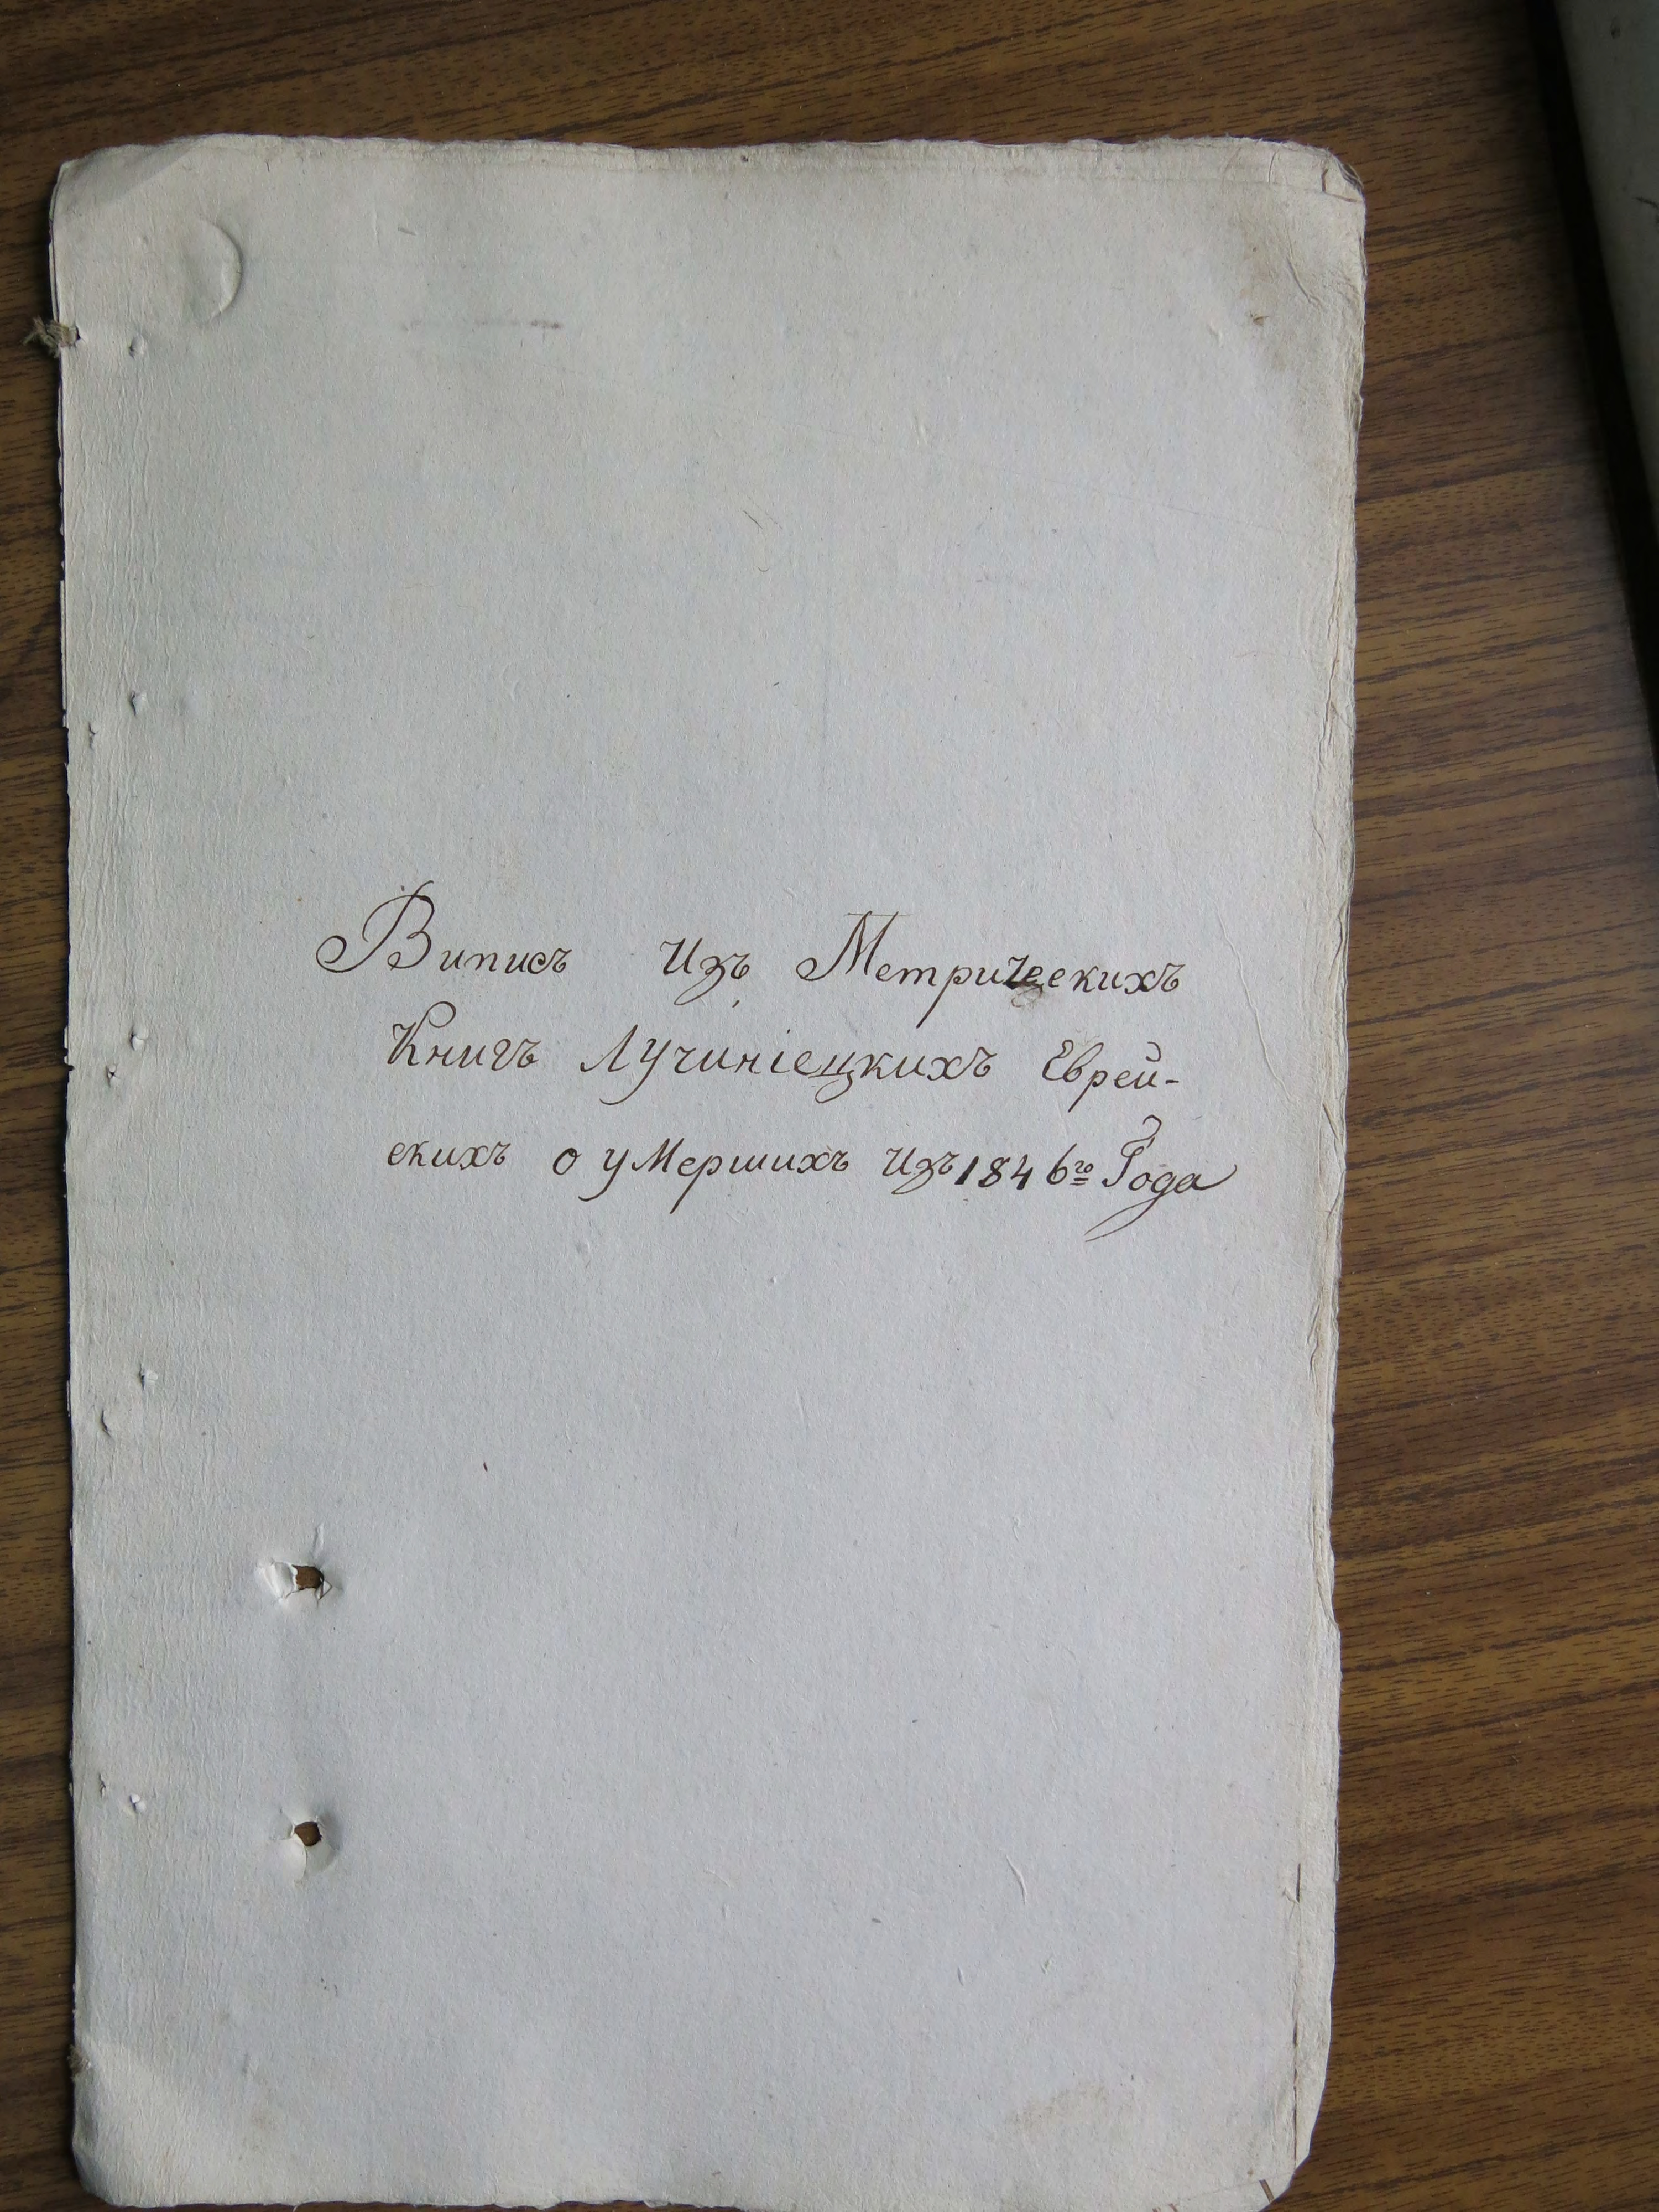 Виписъ Изъ Метрическихъ
Книгъ Лучиніецкихъ Еврей-
скихъ о умершихъ Изъ 1846го Года